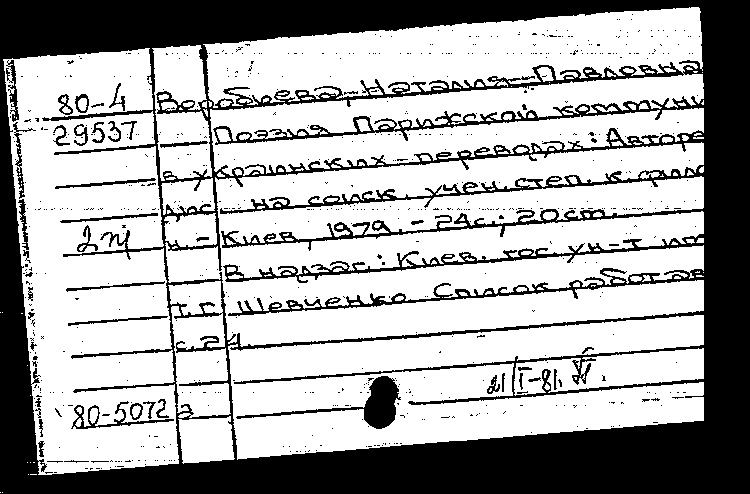 80-4 Воробьева, Наталия Павловна
29537 Поэзия Парижской коммуны
в украинских переводах: Авторе
дис. на соиск. учен. степ. к. филол
2 н. - Киев, 1979. - 24с.; 20см.
В надзаг.: Киев. гос. ун-т им
Т.Г. Шевченко. Список работ ав
с. 24
21/I-81.
80-5072 э